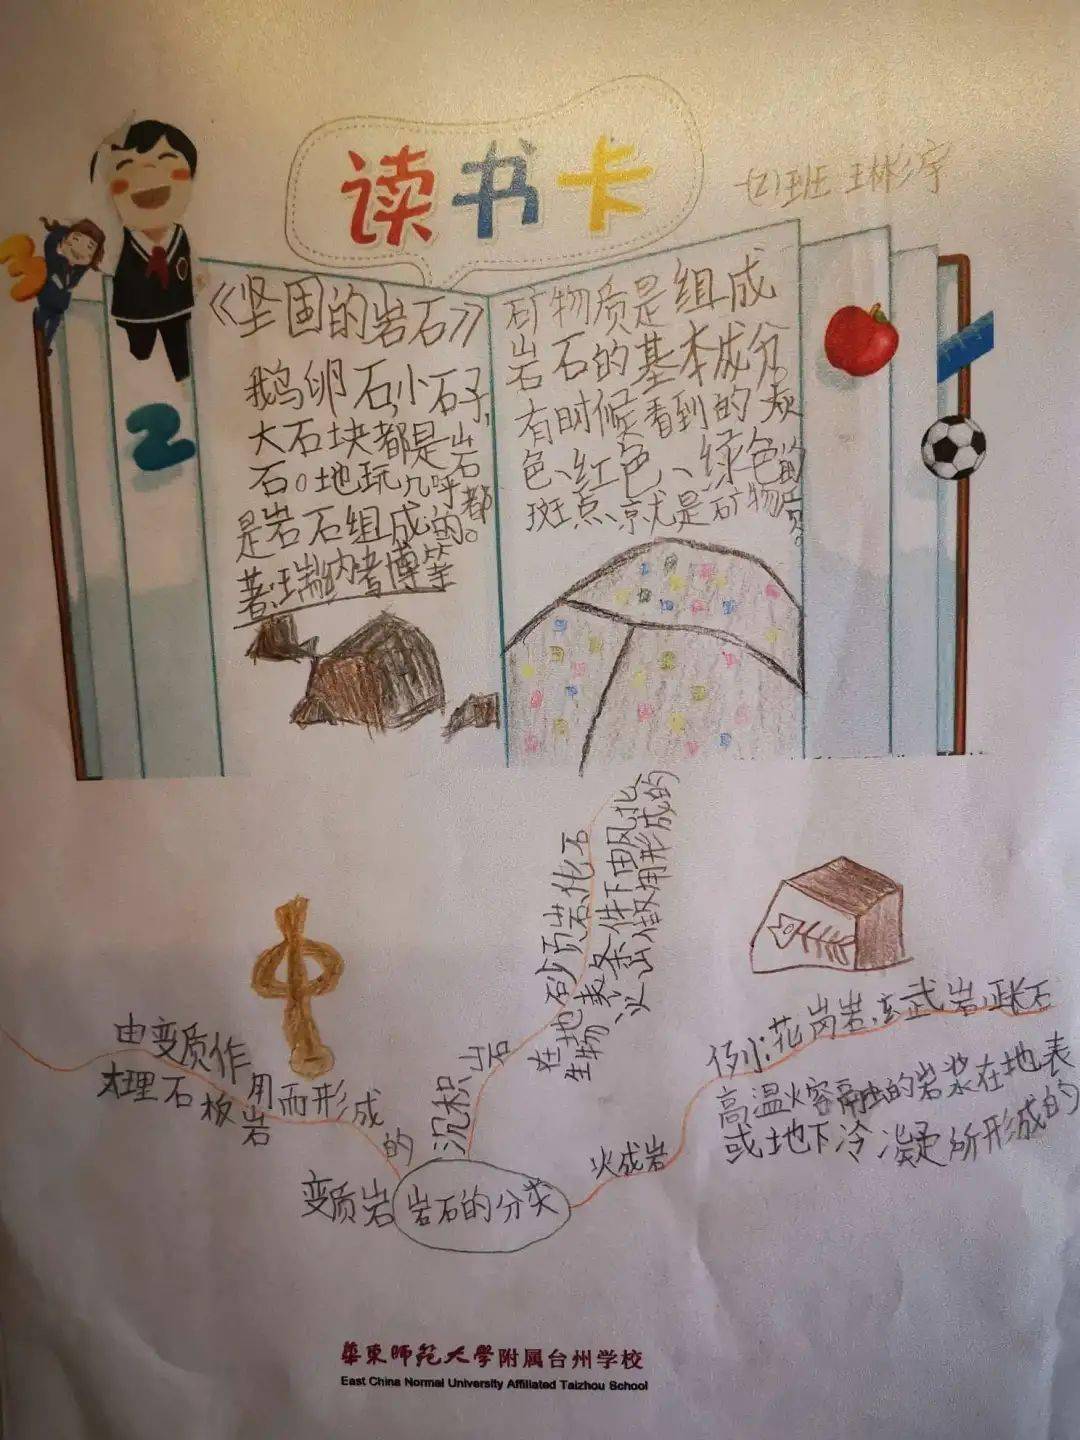 读书卡
一(2)班 王彬宇
《坚固的岩石》
鹅卵石,小石子,
大石块都是岩
石。地玩几呼都
是岩石组成的。
著:瑞纳考博笙
矿物质是组成
岩石的基本成分。
有时候看到的灰
色、红色、绿色的
斑点、京尤是矿物质。
砂页岩、化石
在地表条件下由风化
生物、火山作用形成的
沉积岩
由变质作用而形成的
大理石 板岩
变质岩
岩石的分类
火成岩
例如:花岗岩、玄武岩、正长石
高温火容融的岩浆在地表
或地下冷凝所形成的
華東師范大學附属台州学校
East China Normal University Affiliated Taizhou School